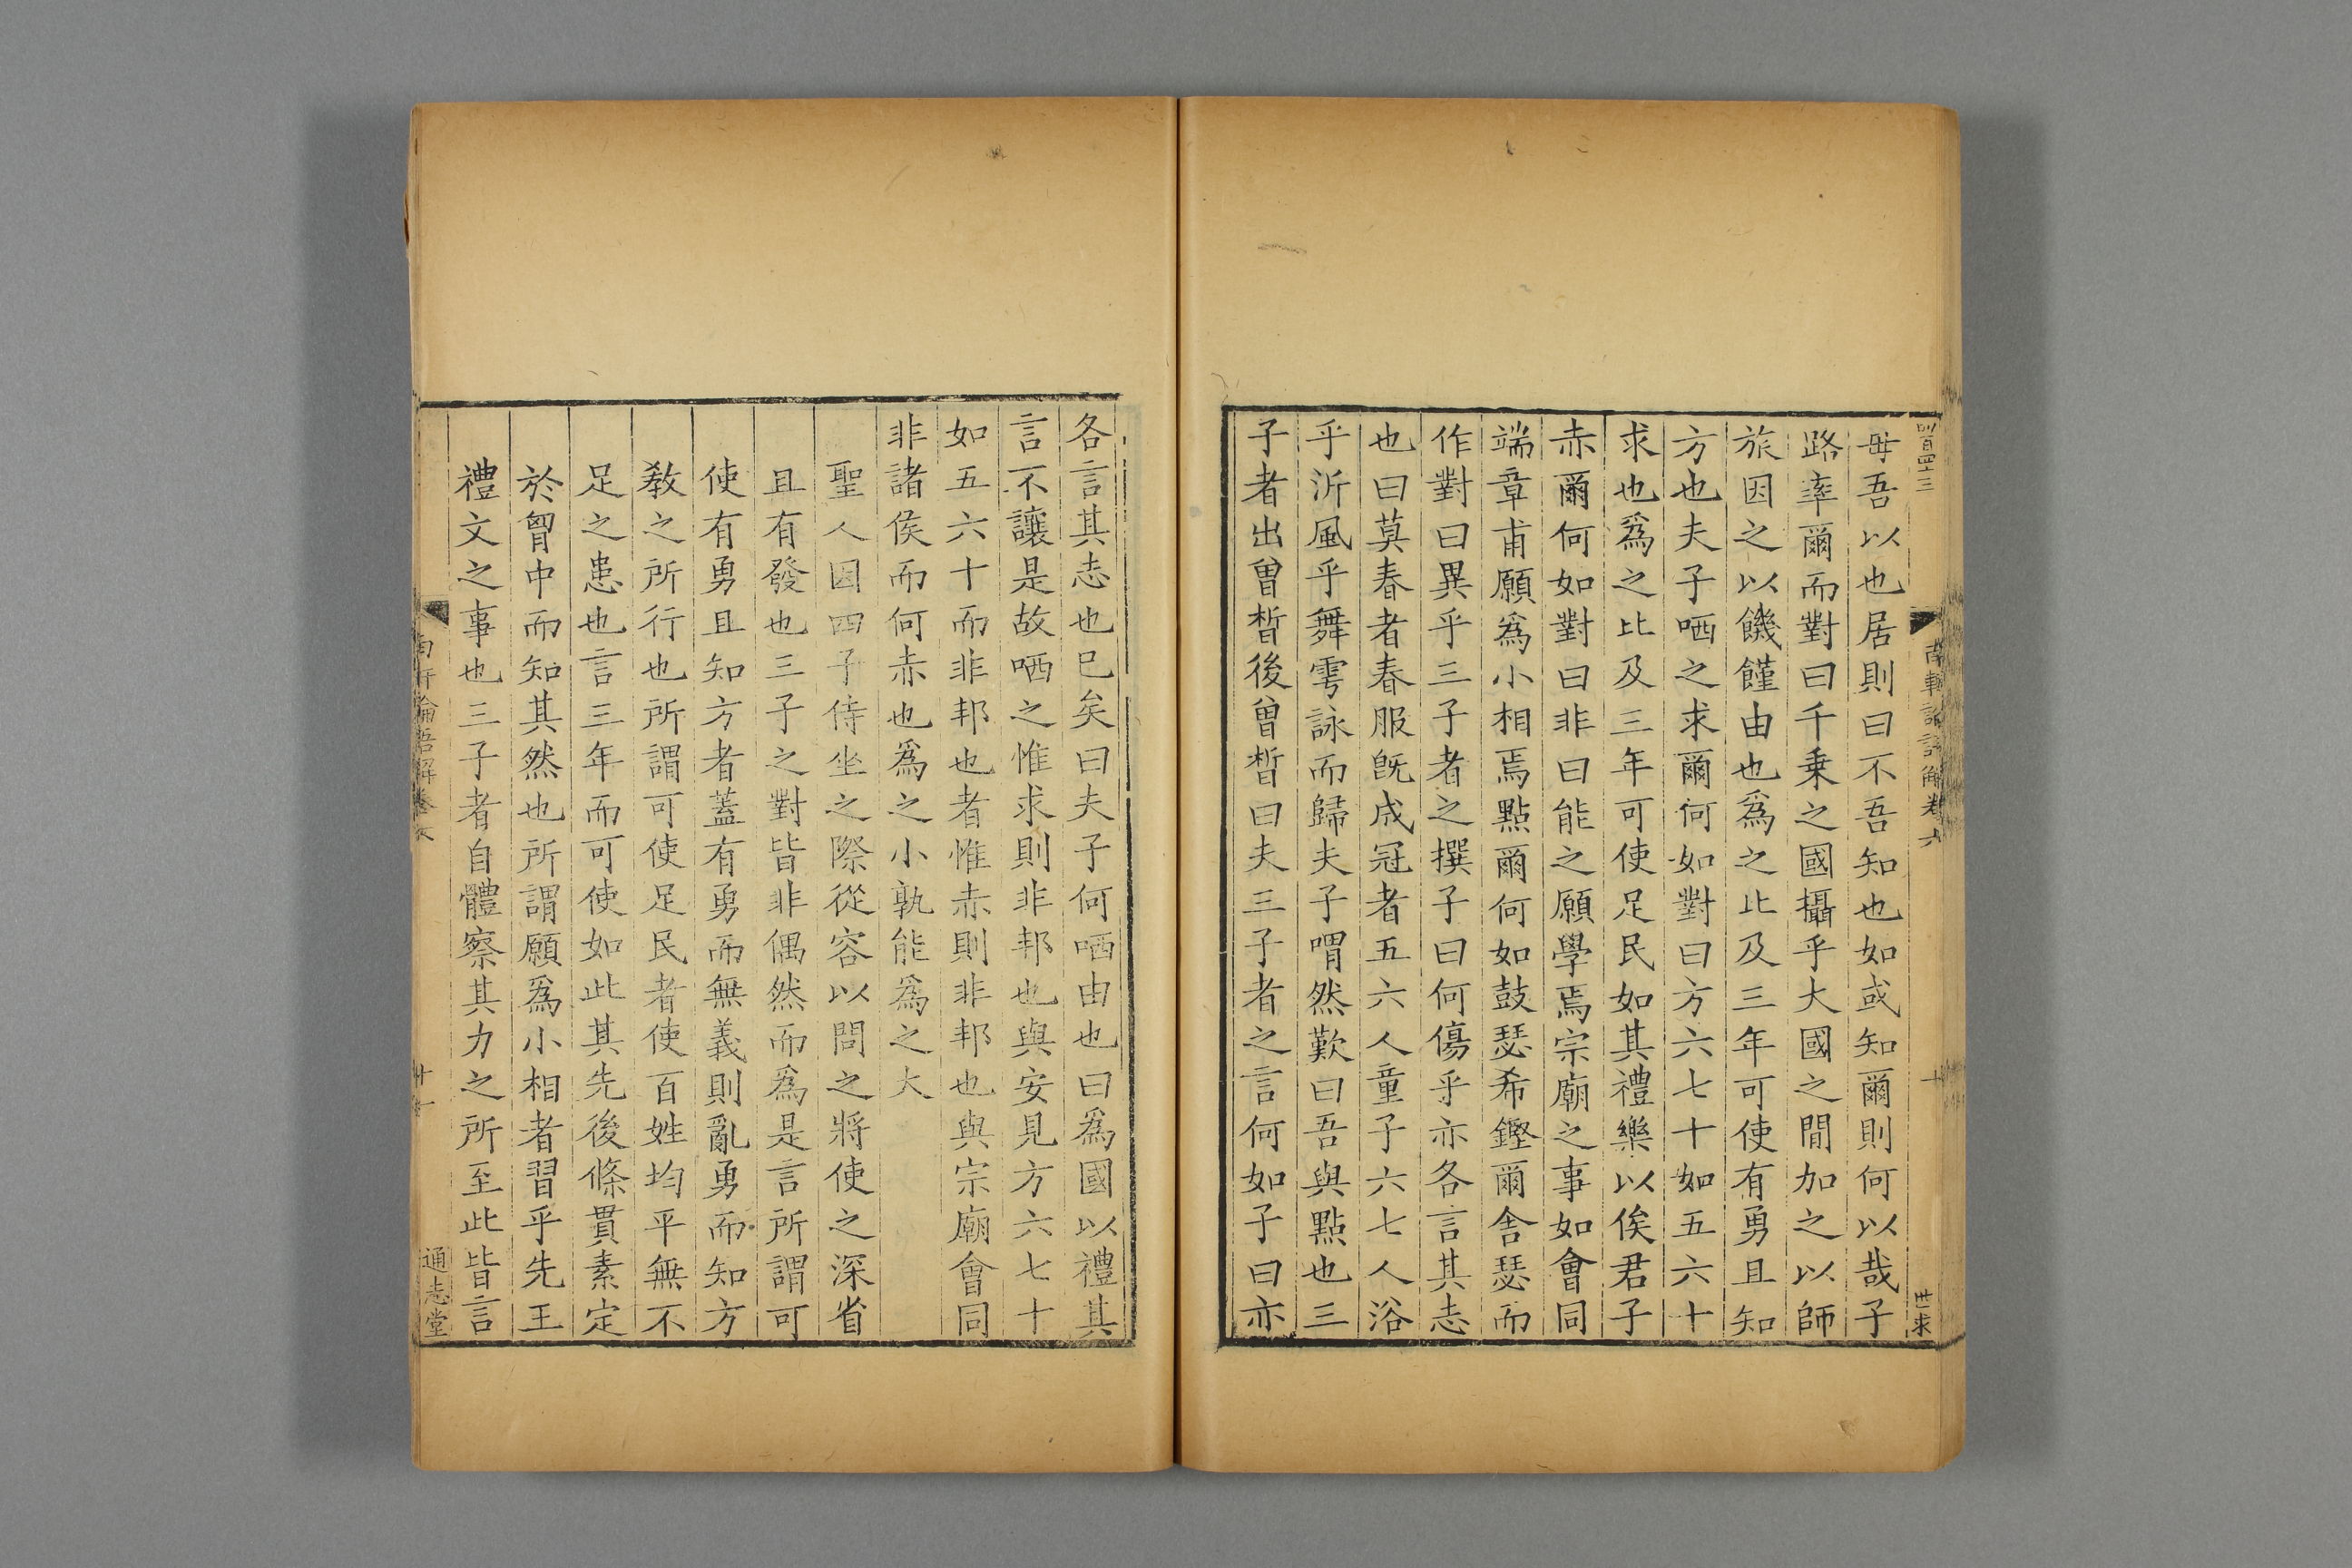 毋吾以也居則曰不吾知也如或知爾則何以哉子
路率爾而對曰千乗之國攝乎大國之間加之以師
旅因之以饑饉由也爲之比及三年可使有勇且知
方也夫子哂之求爾何如對曰方六七十如五六十
求也爲之比及三年可使足民如其禮樂以俟君子
赤爾何如對曰非曰能之願學焉宗廟之事如會同
端章甫願爲小相焉點爾何如鼓瑟希鏗爾舍瑟而
作對曰異乎三子者之撰子曰何傷乎亦各言其志
也曰莫春者春服旣成冠者五六人童子六七人浴
乎沂風乎舞雩詠而歸夫子喟然歎曰吾與點也三
子者出曾晳後曾晳曰夫三子者之言何如子曰亦
各言其志也已矣曰夫子何哂由也曰爲國以禮其
言不讓是故哂之惟求則非邦也與安見方六七十
如五六十而非邦也者惟赤則非邦也與宗廟會同
非諸侯而何赤也爲之小孰能爲之大
聖人因四子侍坐之際從容以問之將使之深省
且有發也三子之對皆非偶然而爲是言所謂可
使有勇且知方者蓋有勇而無義則亂勇而知方
敎之所行也所謂可使足民者使百姓均平無不
足之患也言三年而可使如此其先後條貫素定
於胷中而知其然也所謂願爲小相者習乎先王
禮文之事也三子者自體察其力之所至此皆言
論語解卷
十一
通志堂